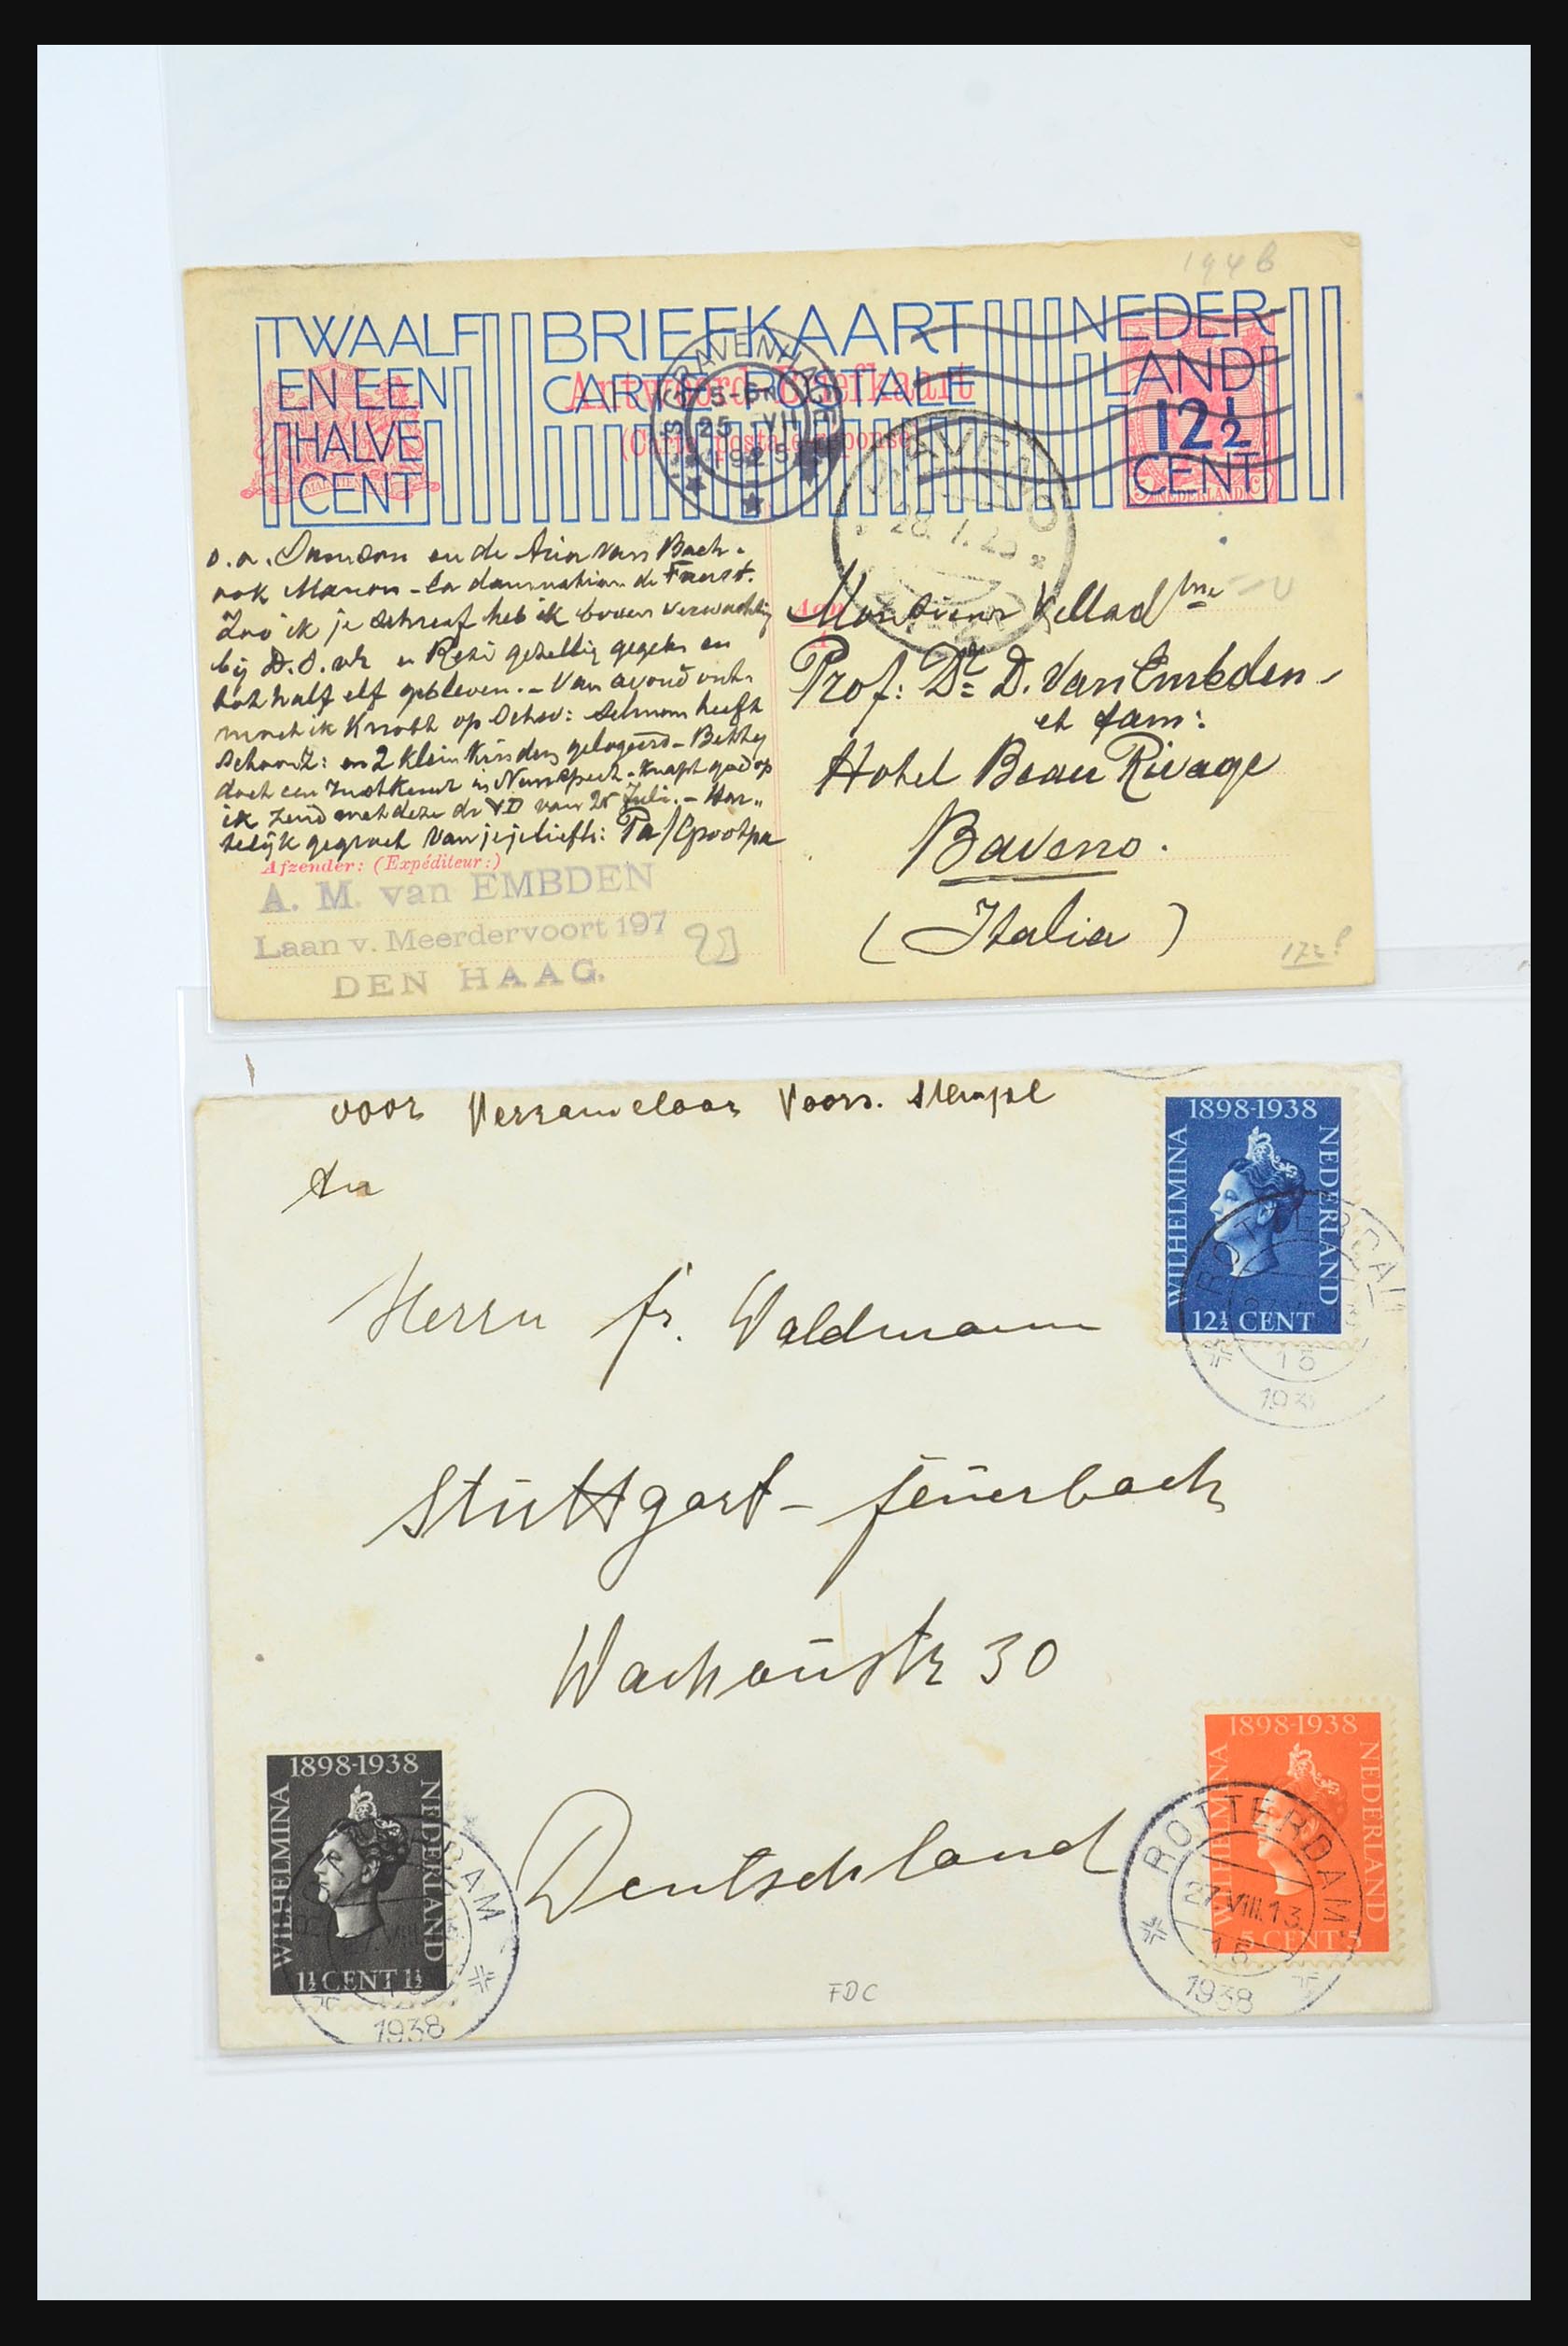 194 B
TWAALF
EN EEN
HALVE
CENT
BRIEFKAART
CARTE POSTALE
Antwoord-Briefkaart
(Carte postale réponse)
NEDER-
LAND
12½
CENT
NEDERLAND
'S GRAVENHAGE
25 VII
1925
BAVENO
28.7.25
o.a. en de Aria van Bach -
ook Manon - la damnation de Faust.
Zoo ik je schreef heb ik boven verwachting
bij D. S. en Rezi gezellig gegeten en
tot half elf gebleven. - Van avond ont-
moet ik op heeft
en 2 kleinkinders gelogeerd - Betty
doet een in Nunspeet - knapt goed op
ik zend met deze de VD van 25 Juli. - Har-
telijk gegroet van je je liefh: Pa/Grootpa
Afzender: (Expéditeur:)
A. M. van EMBDEN
Laan v. Meerdervoort 197
DEN HAAG.
Monsieur &
Prof: Dr D. van Embden -
et fam:
Hotel Beau Rivage
Baveno.
(Italia)
voor Verzamelaar Voorz. stempel
An
Herrn Fr. Waldmann
Stuttgart - Feuerbach
Wachaustr 30
Deutschland
FDC
1898-1938
WILHELMINA
NEDERLAND
12½ CENT
ROTTERDAM
15
193
1898-1938
WILHELMINA
NEDERLAND
1½ CENT 1½
1938
1898-1938
WILHELMINA
NEDERLAND
5 CENT 5
ROTTERDAM
27.VIII.13
15
1938